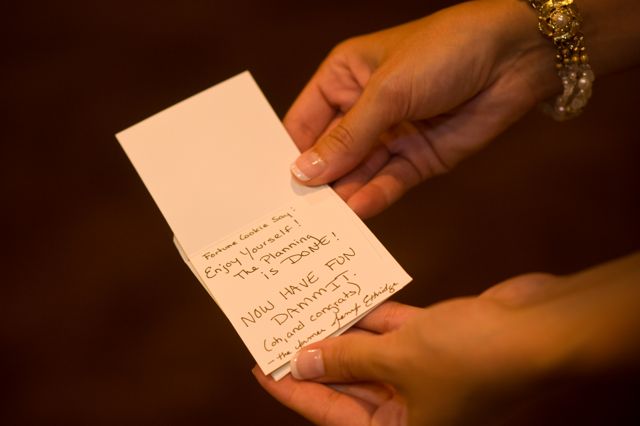 Fortune Cookie Say:
Enjoy Yourself!
The Planning
is DONE!
NOW HAVE FUN
DAMMIT.
(oh, and congrats)
- the former Jennifer Ethridge